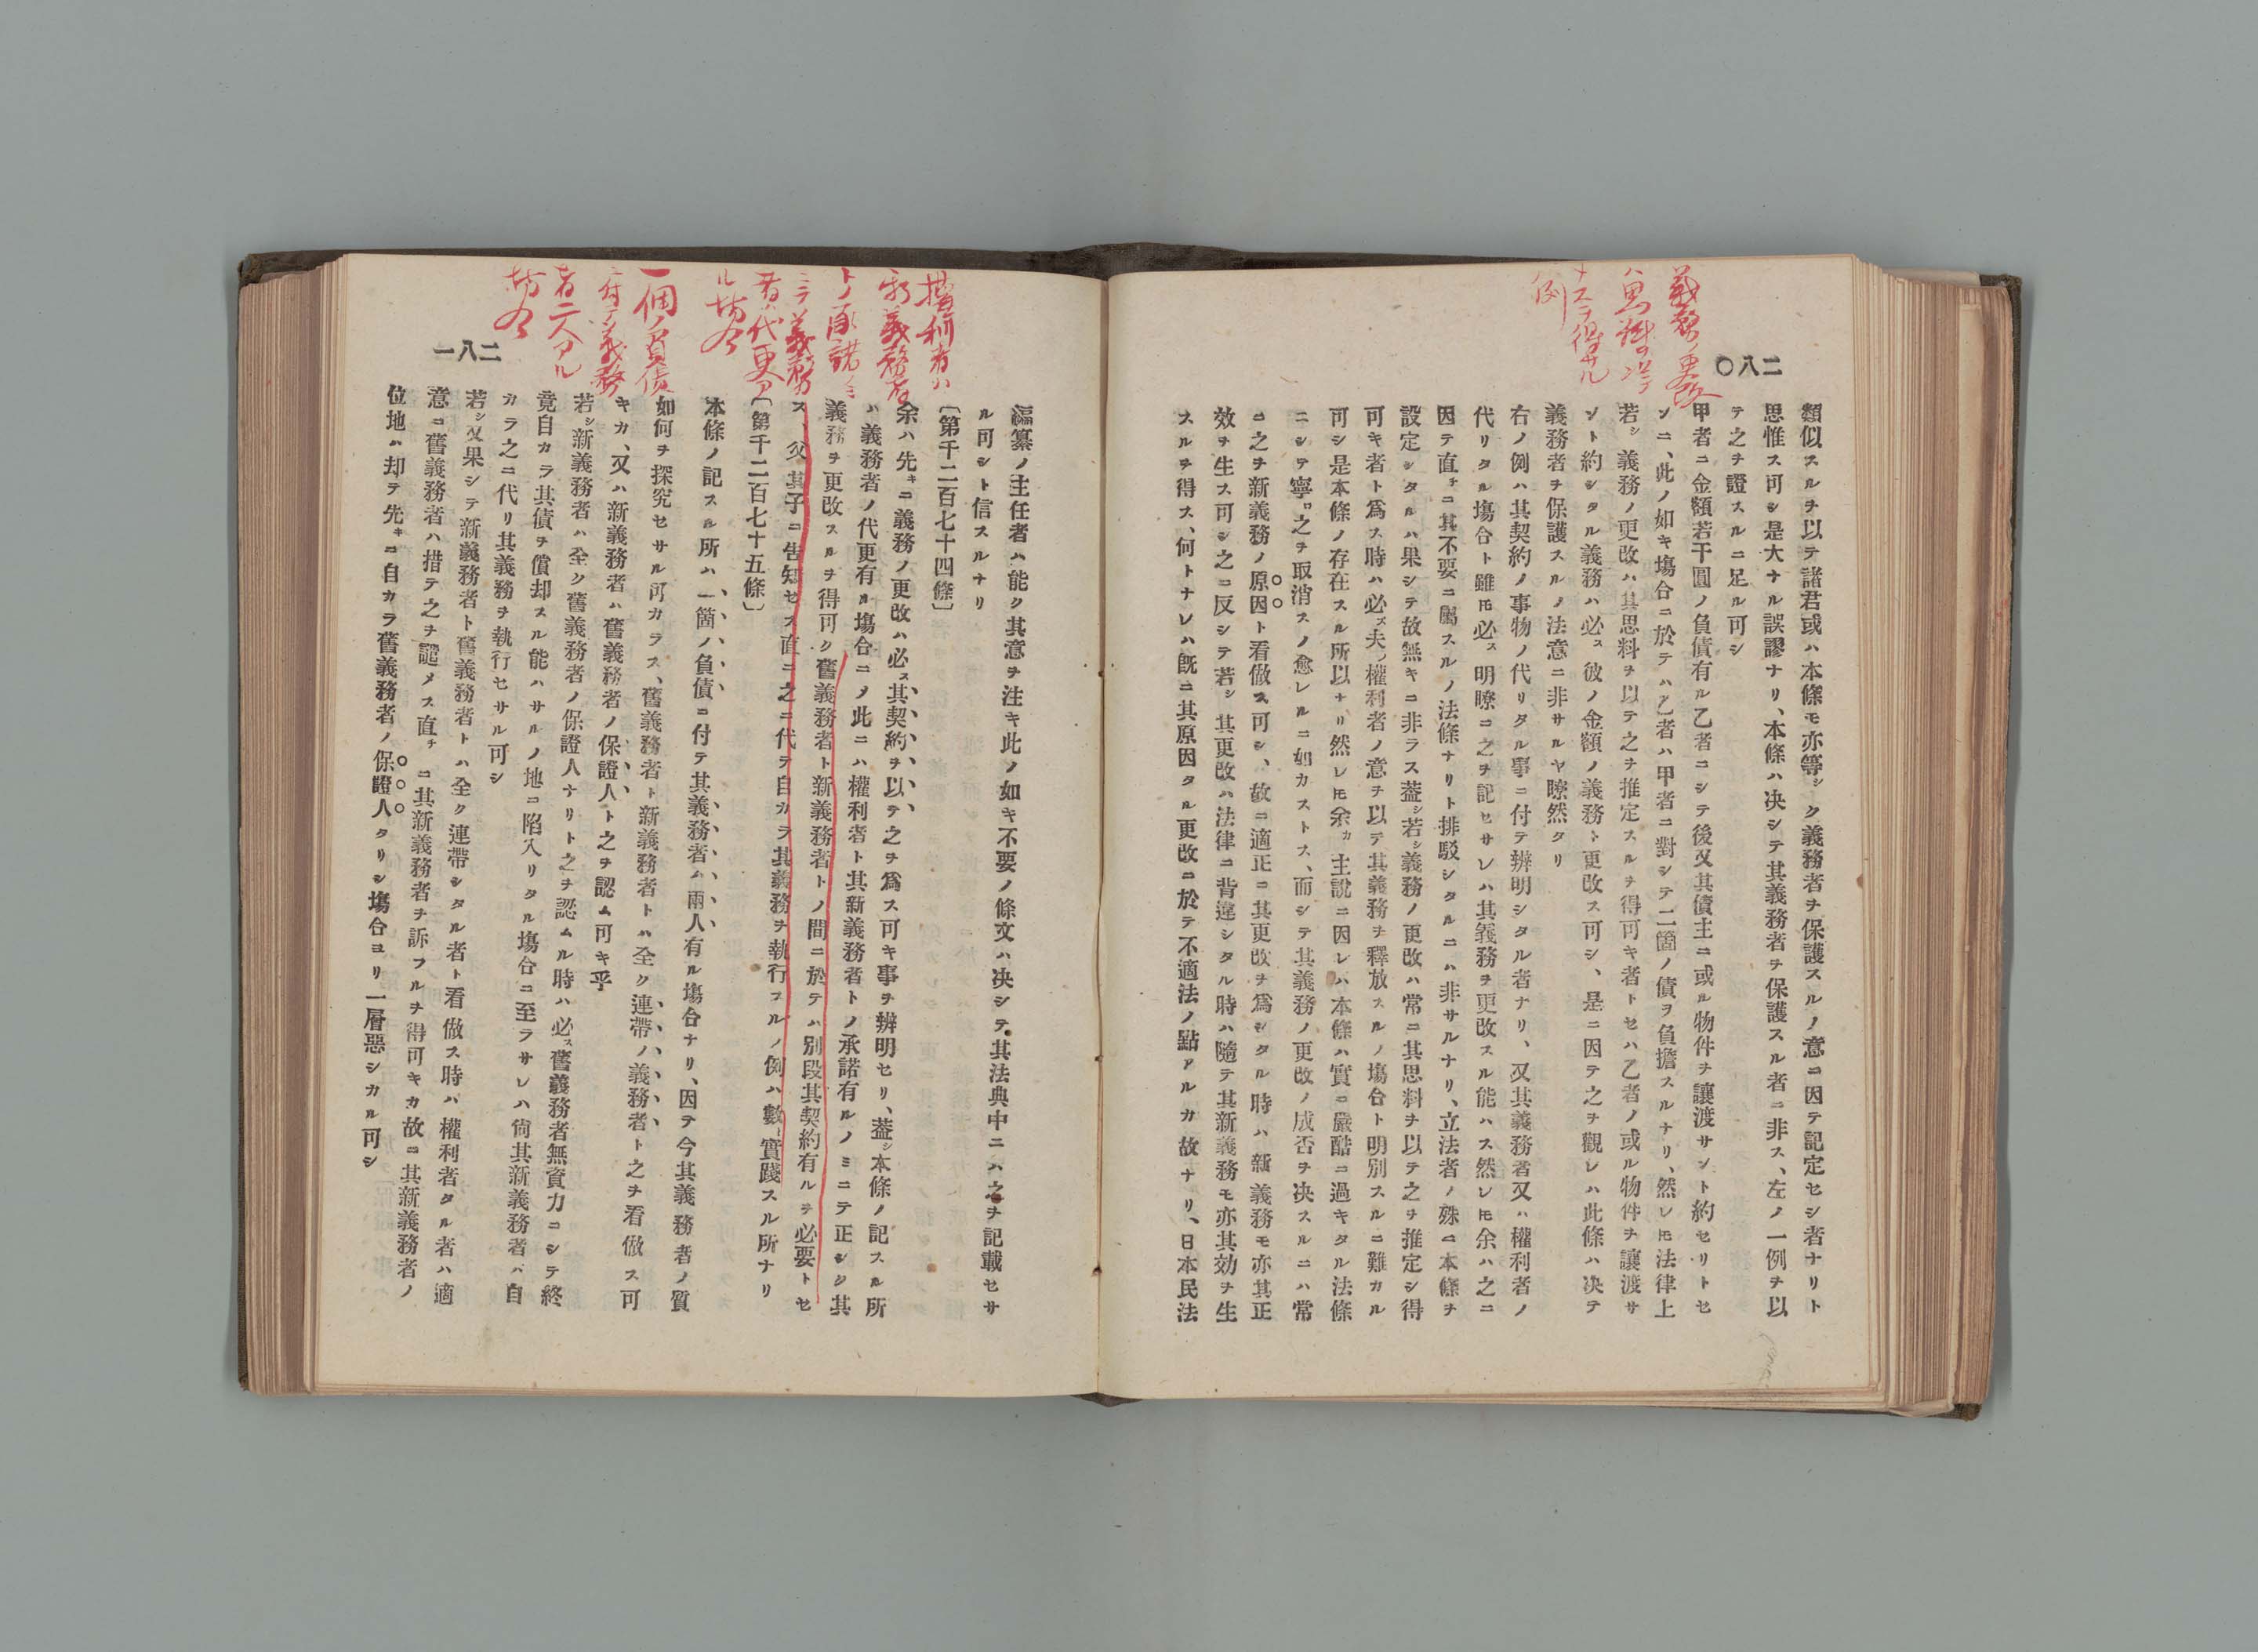 二八〇
類似スルヲ以テ諸君或ハ本條モ亦等シク義務者ヲ保護スルノ意ニ因テ記定セシ者ナリト
思惟ス可シ是大ナル誤謬ナリ、本條ハ决シテ其義務者ヲ保護スル者ニ非ス、左ノ一例ヲ以
テ之ヲ證スルニ足ル可シ
甲者ニ金額若干圓ノ負債有ル乙者ニシテ後又其債主ニ或ル物件ヲ讓渡サント約セリトセ
ンニ、此ノ如キ塲合ニ於テハ乙者ハ甲者ニ對シテ二箇ノ債ヲ負擔スルナリ、然レ𪜈法律上
若シ義務ノ更改ハ其思料ヲ以テ之ヲ推定スルヲ得可キ者トセハ乙者ノ或ル物件ヲ讓渡サ
ント約シタル義務ハ必ス彼ノ金額ノ義務ト更改ス可シ、是ニ因テ之ヲ觀レハ此條ハ决テ
義務者ヲ保護スルノ法意ニ非サルヤ瞭然タリ
右ノ例ハ其契約ノ事物ノ代リタル事ニ付テ辨明シタル者ナリ、又其義務者又ハ權利者ノ
代リタル塲合ト雖𪜈必ス明瞭ニ之ヲ記セサレハ其義務ヲ更改スル能ハス然レ𪜈余ハ之ニ
因テ直チニ其不要ニ屬スルノ法條ナリト排駁シタルニハ非サルナリ、立法者ノ殊ニ本條ヲ
設定シタルハ果シテ故無キニ非ラス葢シ若シ義務ノ更改ハ常ニ其思料ヲ以テ之ヲ推定シ得
可キ者ト爲ス時ハ必ス夫ノ權利者ノ意ヲ以テ其義務ヲ釋放スルノ塲合ト明別スルニ難カル
可シ是本條ノ存在スル所以ナリ然レ𪜈余カ主說ニ因レハ本條ハ實ニ嚴酷ニ過キタル法條
ニシテ寧ロ之ヲ取消スノ愈レルニ如カストス、而シテ其義務ノ更改ノ成否ヲ决スルニハ常
ニ之ヲ新義務ノ原因ト看做ス可シ、故ニ適正ニ其更改ヲ爲シタル時ハ新義務モ亦其正
效ヲ生ス可シ之ニ反シテ若シ其更改ハ法律ニ背違シタル時ハ隨テ其新義務モ亦其効ヲ生
スルヲ得ス、何トナレハ旣ニ其原因タル更改ニ於テ不適法ノ點アルカ故ナリ、日本民法
權利者ハ
新義務者
トノ承諾ノミ
ニテ義務
者ノ代更ア
ル塲合
一個ノ負債
ニ付テ義務
者二人アル
塲合
二八一
編纂ノ主任者ハ能ク其意ヲ注キ此ノ如キ不要ノ條文ハ决シテ其法典中ニハ之ヲ記載セサ
ル可シト信スルナリ
〔第千二百七十四條〕
余ハ先キニ義務ノ更改ハ必ス其契約ヲ以テ之ヲ爲ス可キ事ヲ辨明セリ、葢シ本條ノ記スル所
ハ義務者ノ代更有ル塲合ニノ此ニハ權利者ト其新義務者トノ承諾有ルノミニテ正シク其
義務ヲ更改スルヲ得可ク舊義務者ト新義務者トノ間ニ於テハ別段其契約有ルヲ必要トセ
ス、父其子ニ告知セス直ニ之ニ代テ自カラ其義務ヲ執行スルノ例ハ數實踐スル所ナリ
〔第千二百七十五條〕
本條ノ記スル所ハ一箇ノ負債ニ付テ其義務者ハ兩人有ル塲合ナリ、因テ今其義務者ノ質
如何ヲ探究セサル可カラス、舊義務者ト新義務者トハ全ク連帶ノ義務者ト之ヲ看做ス可
キカ、又ハ新義務者ハ舊義務者ノ保證人ト之ヲ認ム可キ乎
若シ新義務者ハ全ク舊義務者ノ保證人ナリト之ヲ認ムル時ハ必ス舊義務者無資力ニシテ終
竟自カラ其債ヲ償却スル能ハサルノ地ニ陷入リタル塲合ニ至ラサレハ尙其新義務者ハ自
カラ之ニ代リ其義務ヲ執行セサル可シ
若シ又果シテ新義務者ト舊義務者トハ全ク連帶シタル者ト看做ス時ハ權利者タル者ハ適
意ニ舊義務者ハ措テ之ヲ譴メス直チニ其新義務者ヲ訴フルヲ得可キカ故ニ其新義務者ノ
位地ハ却テ先キニ自カラ舊義務者ノ保證人タリシ塲合ヨリ一層惡シカル可シ